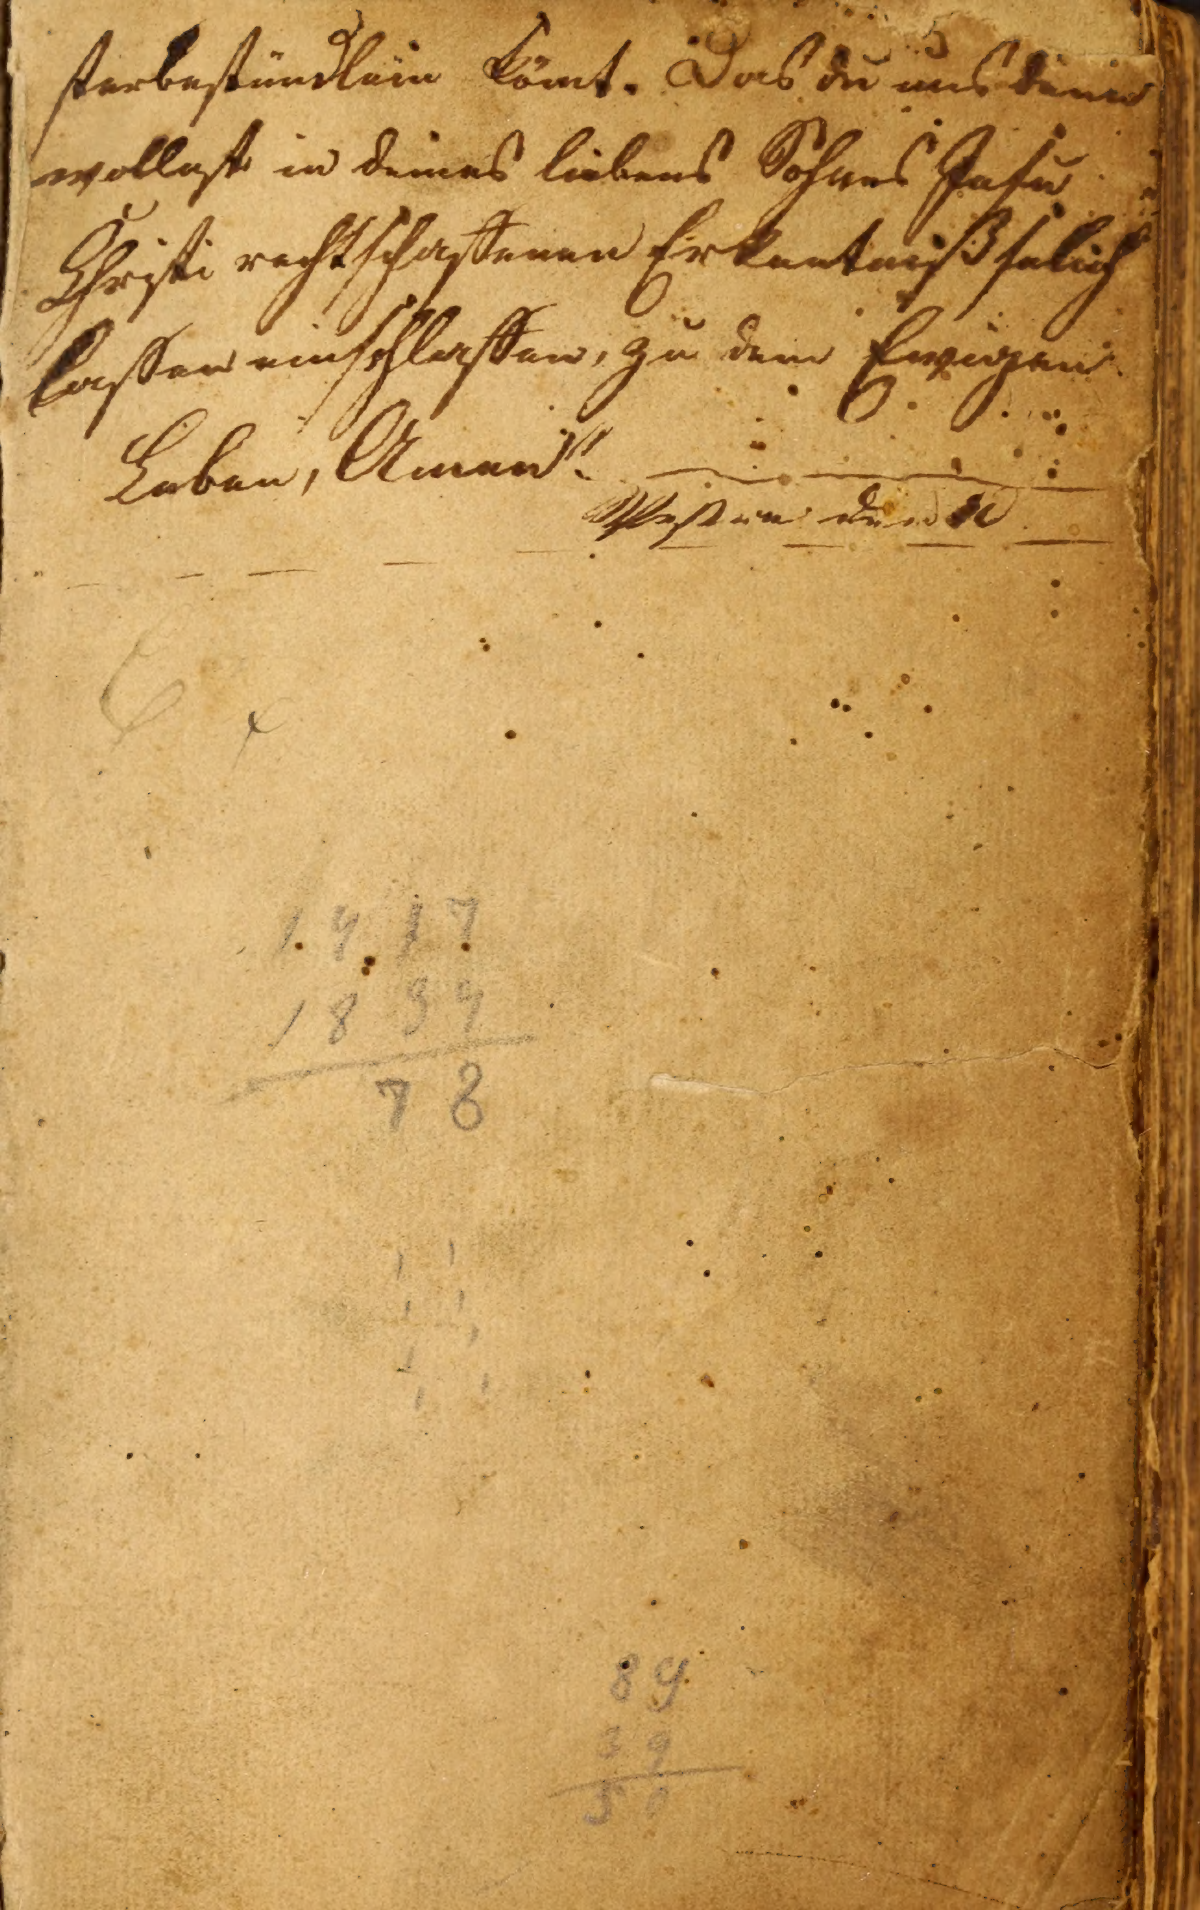 sterbestündlein kömt. Das du uns denn
wollest in deines liebens Sohnes Jesu
Christi rechtschaffenen Erkentniß selich
lassen einschlaffen, zu dem Ewigen
Leben, Amen".
den
1 9 1 7
1 8 3 9
7 8
8 9
3 9
5 0